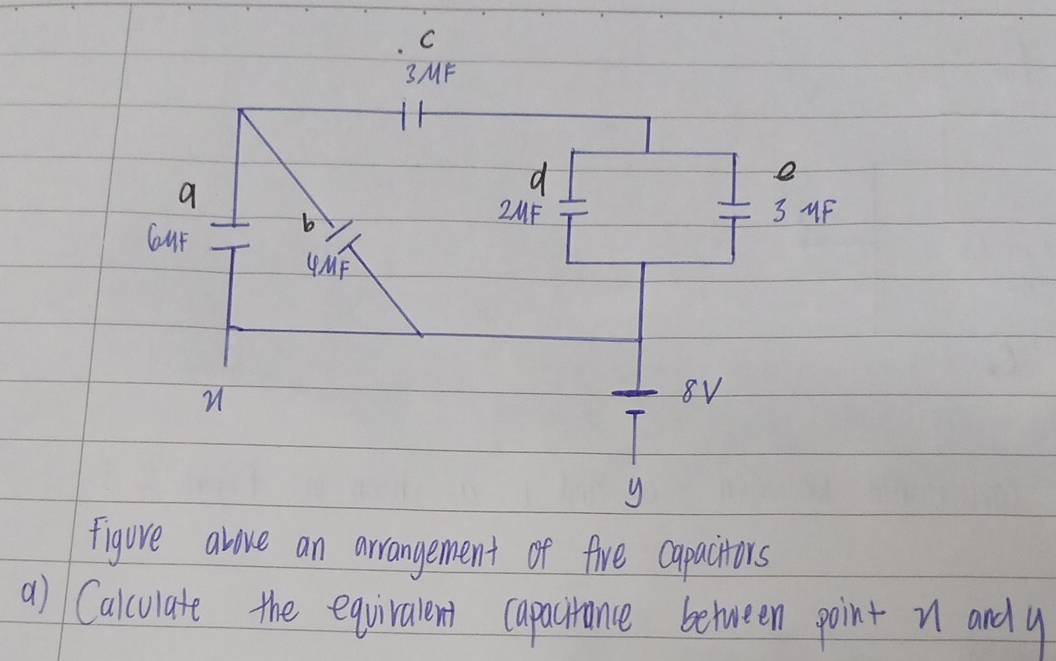 c
3 MF
a
6MF
b
4MF
d
2MF
e
3 MF
x
8V
y
Figure above an arrangement of five capacitors
a) Calculate the equivalent capacitance between point x and y